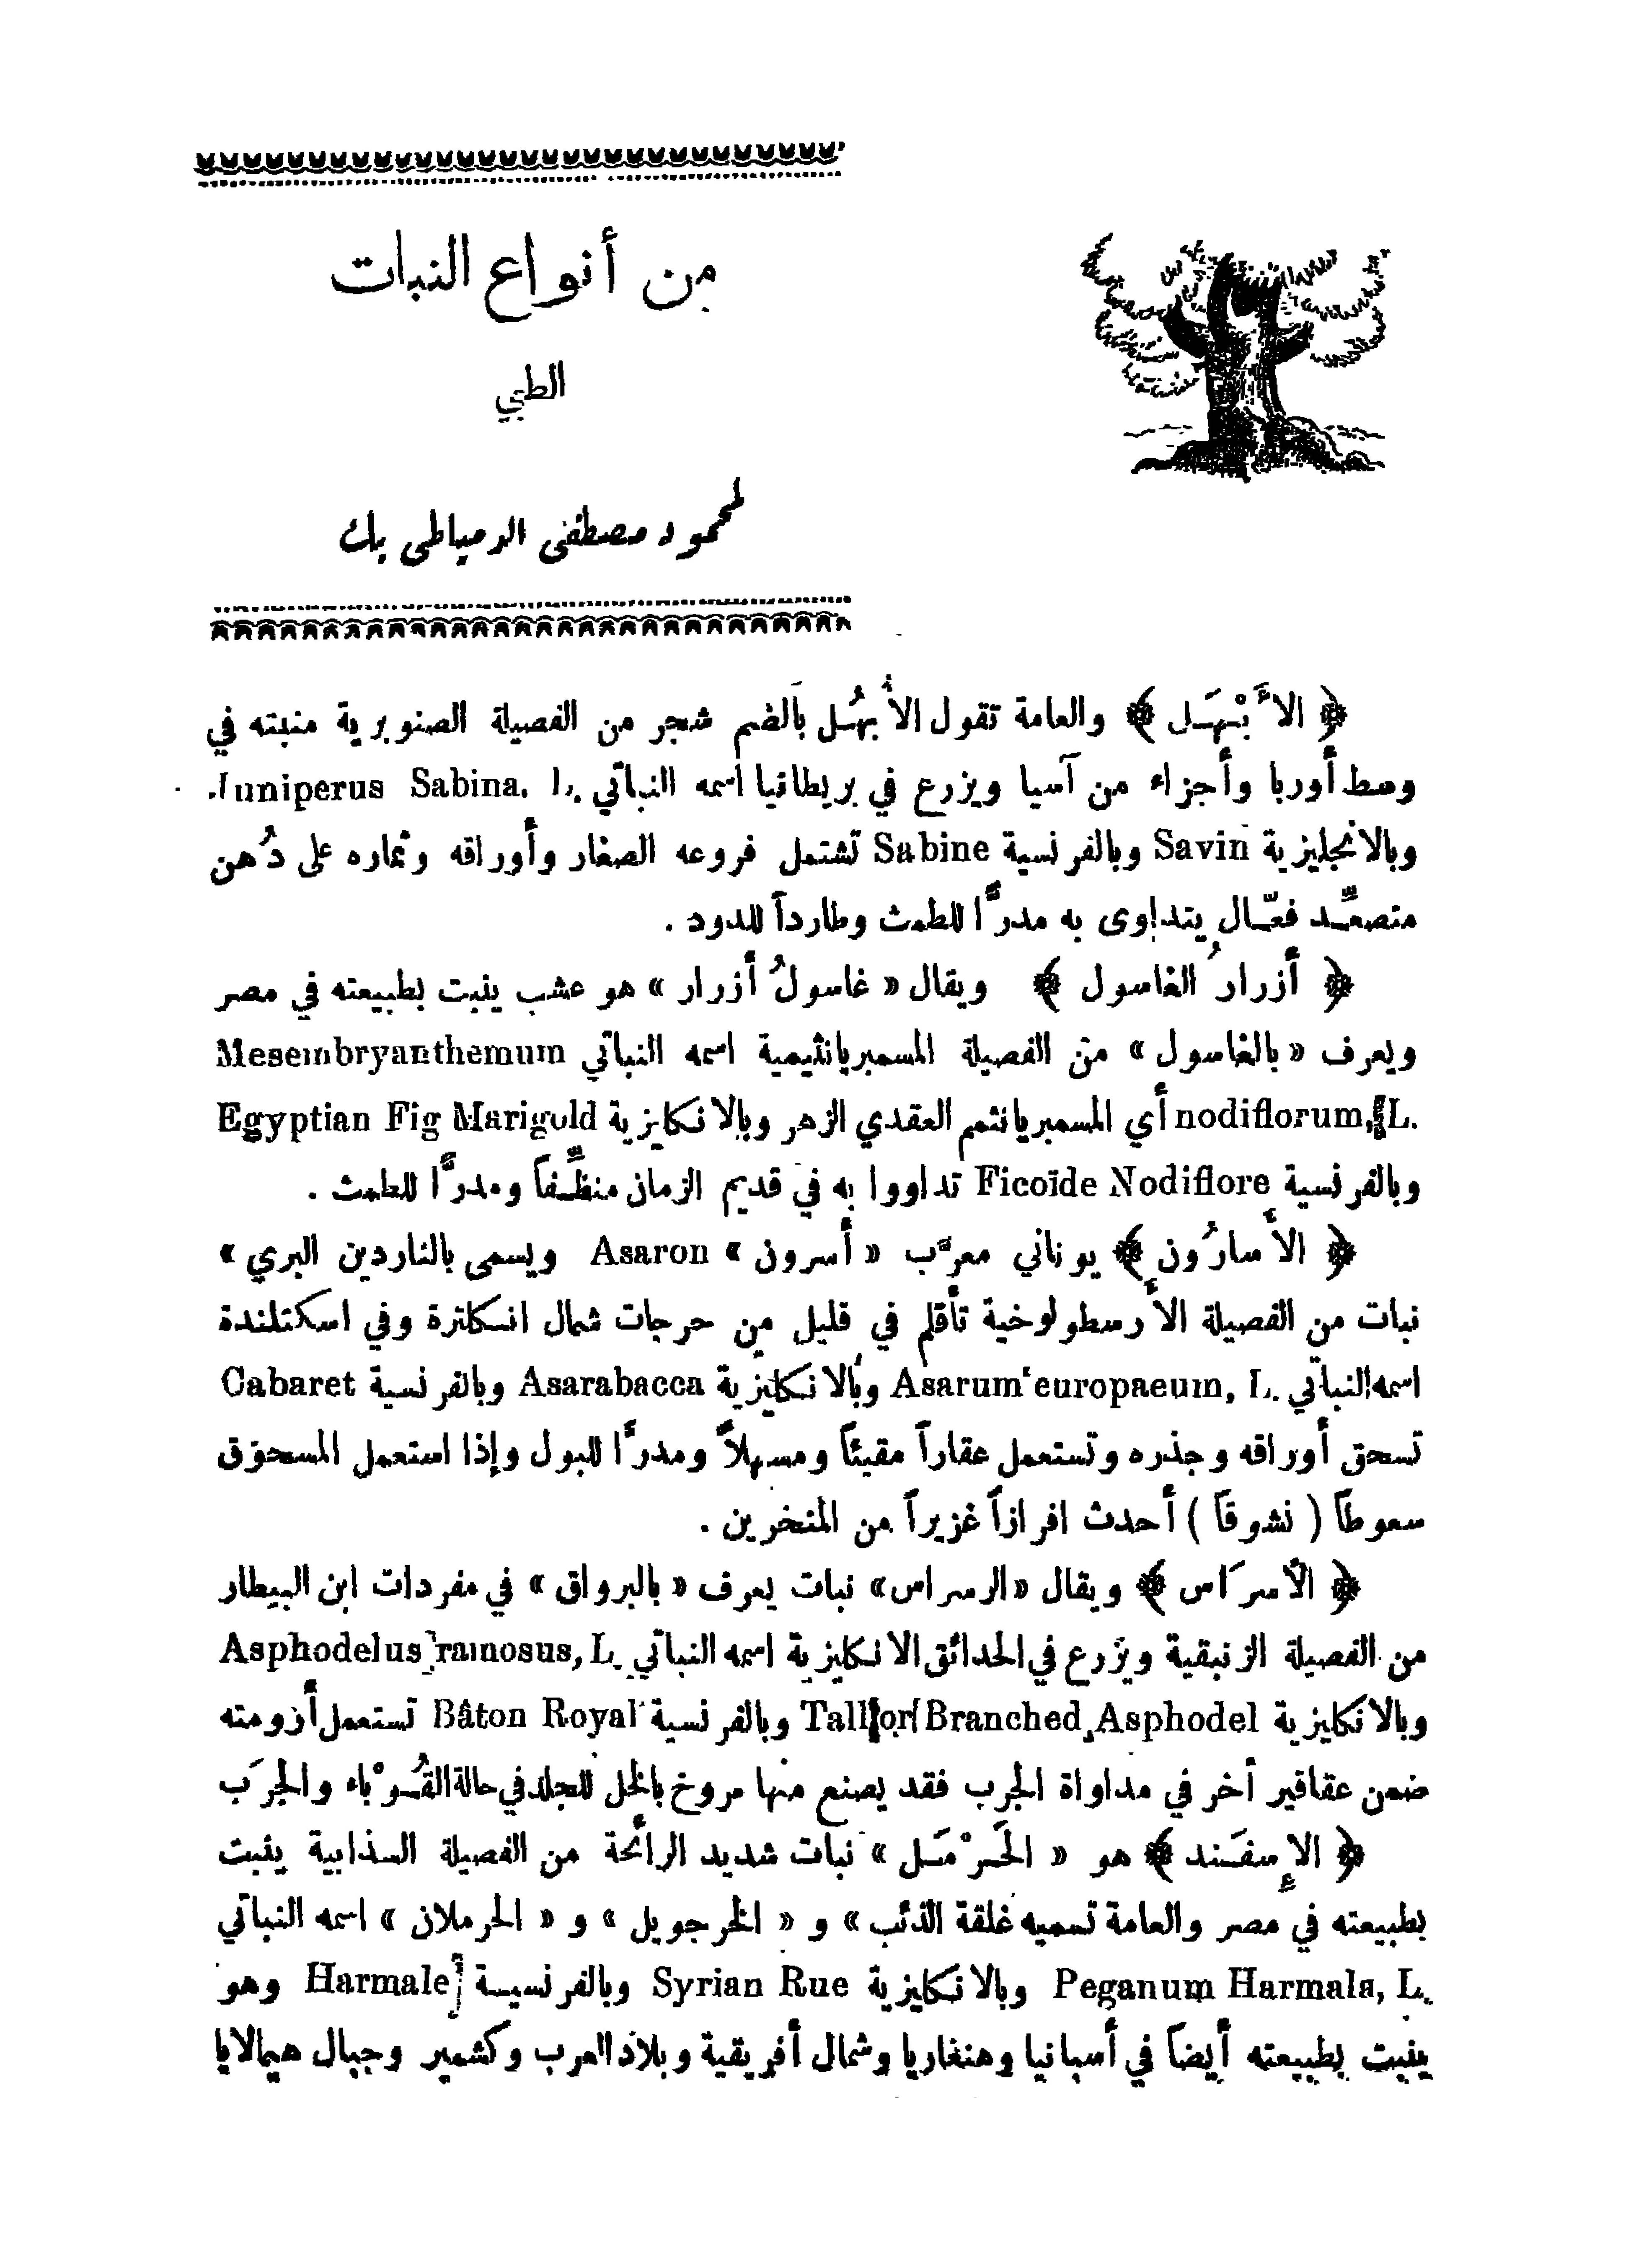 من أنواع النبات
الطبي
لمحمود مصطفى الدمياطى بك
﴿ الأَبْهَـل ﴾ والعامة تقول الأُبهُـل بالضم شجر من الفصيلة الصنوبرية منبته في
وسط أوربا وأجزاء من آسيا ويزرع في بريطانيا اسمه النباتي Juniperus Sabina. L.
وبالانجليزية Savin وبالفرنسية Sabine تشتمل فروعه الصغار وأوراقه وثماره على دُهن
متصعِّـد فعّـال يتداوى به مدرًّا للطمث وطارداً للدود .
﴿ أزرارُ الغاسول ﴾ ويقال « غاسولُ أزرار » هو عشب ينبت بطبيعته في مصر
ويعرف « بالغاسول » من الفصيلة المسمبريانثيمية اسمه النباتي Mesembryanthemum
nodiflorum, L. أي المسمبريانثمم العقدي الزهر وبالانكليزية Egyptian Fig Marigold
وبالفرنسية Ficoïde Nodiflore تداووا به في قديم الزمان منظِّـفاً ومدرًّا للطمث .
﴿ الأسارُون ﴾ يوناني معرّب « أسرون » Asaron ويسمى بالناردين البري »
نبات من الفصيلة الأرسطولوخية تأقلم في قليل من حرجات شمال انكلترة وفي اسكتلندة
اسمه النباتي Asarum europaeum, L. وبالانكليزية Asarabacca وبالفرنسية Cabaret
تسحق أوراقه وجذره وتستعمل عقاراً مقيئاً ومسهلاً ومدرًّا للبول وإذا استعمل المسحوق
سعوطاً ( نشوقاً ) أحدث افرازاً غزيراً من المنخرين .
﴿ الأسرَاس ﴾ ويقال « الرسراس » نبات يعرف « بالبرواق » في مفردات ابن البيطار
من الفصيلة الزنبقية ويزرع في الحدائق الانكليزية اسمه النباتي Asphodelus ramosus, L.
وبالانكليزية Tall or Branched Asphodel وبالفرنسية Bâton Royal تستعمل أزومته
ضمن عقاقير أخر في مداواة الجرب فقد يصنع منها مروخ بالخل للجلد في حالة القُـوْباء والجرَب
﴿ الإسفَـند ﴾ هو « الحَـرْمَـل » نبات شديد الرائحة من الفصيلة السذابية ينبت
بطبيعته في مصر والعامة تسميه غلقة الذئب » و « الخرجويل » و « الحرملان » اسمه النباتي
Peganum Harmala, L. وبالانكليزية Syrian Rue وبالفرنسيـة Harmale وهو
ينبت بطبيعته أيضاً في أسبانيا وهنغاريا وشمال أفريقية وبلاد العرب وكشمير وجبال هيمالايا